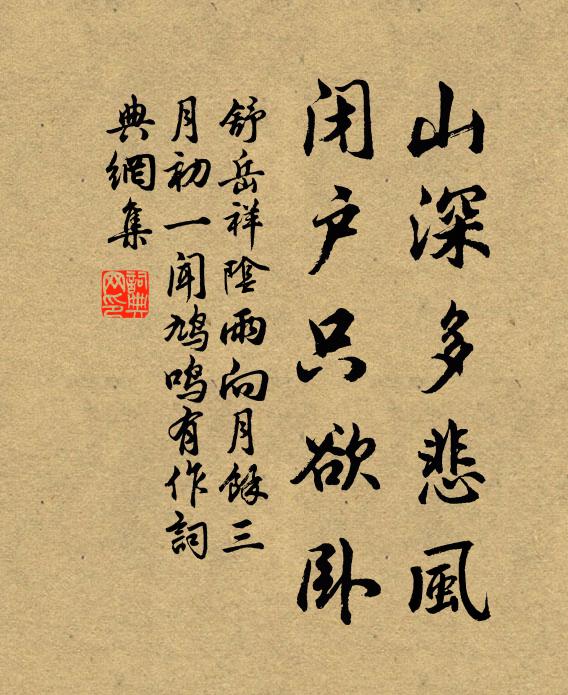 山深多悲風
闭户只欲卧
舒岳祥陰雨向月餘三
月初一聞鳩鳴有作詞
典網集
詞典网印